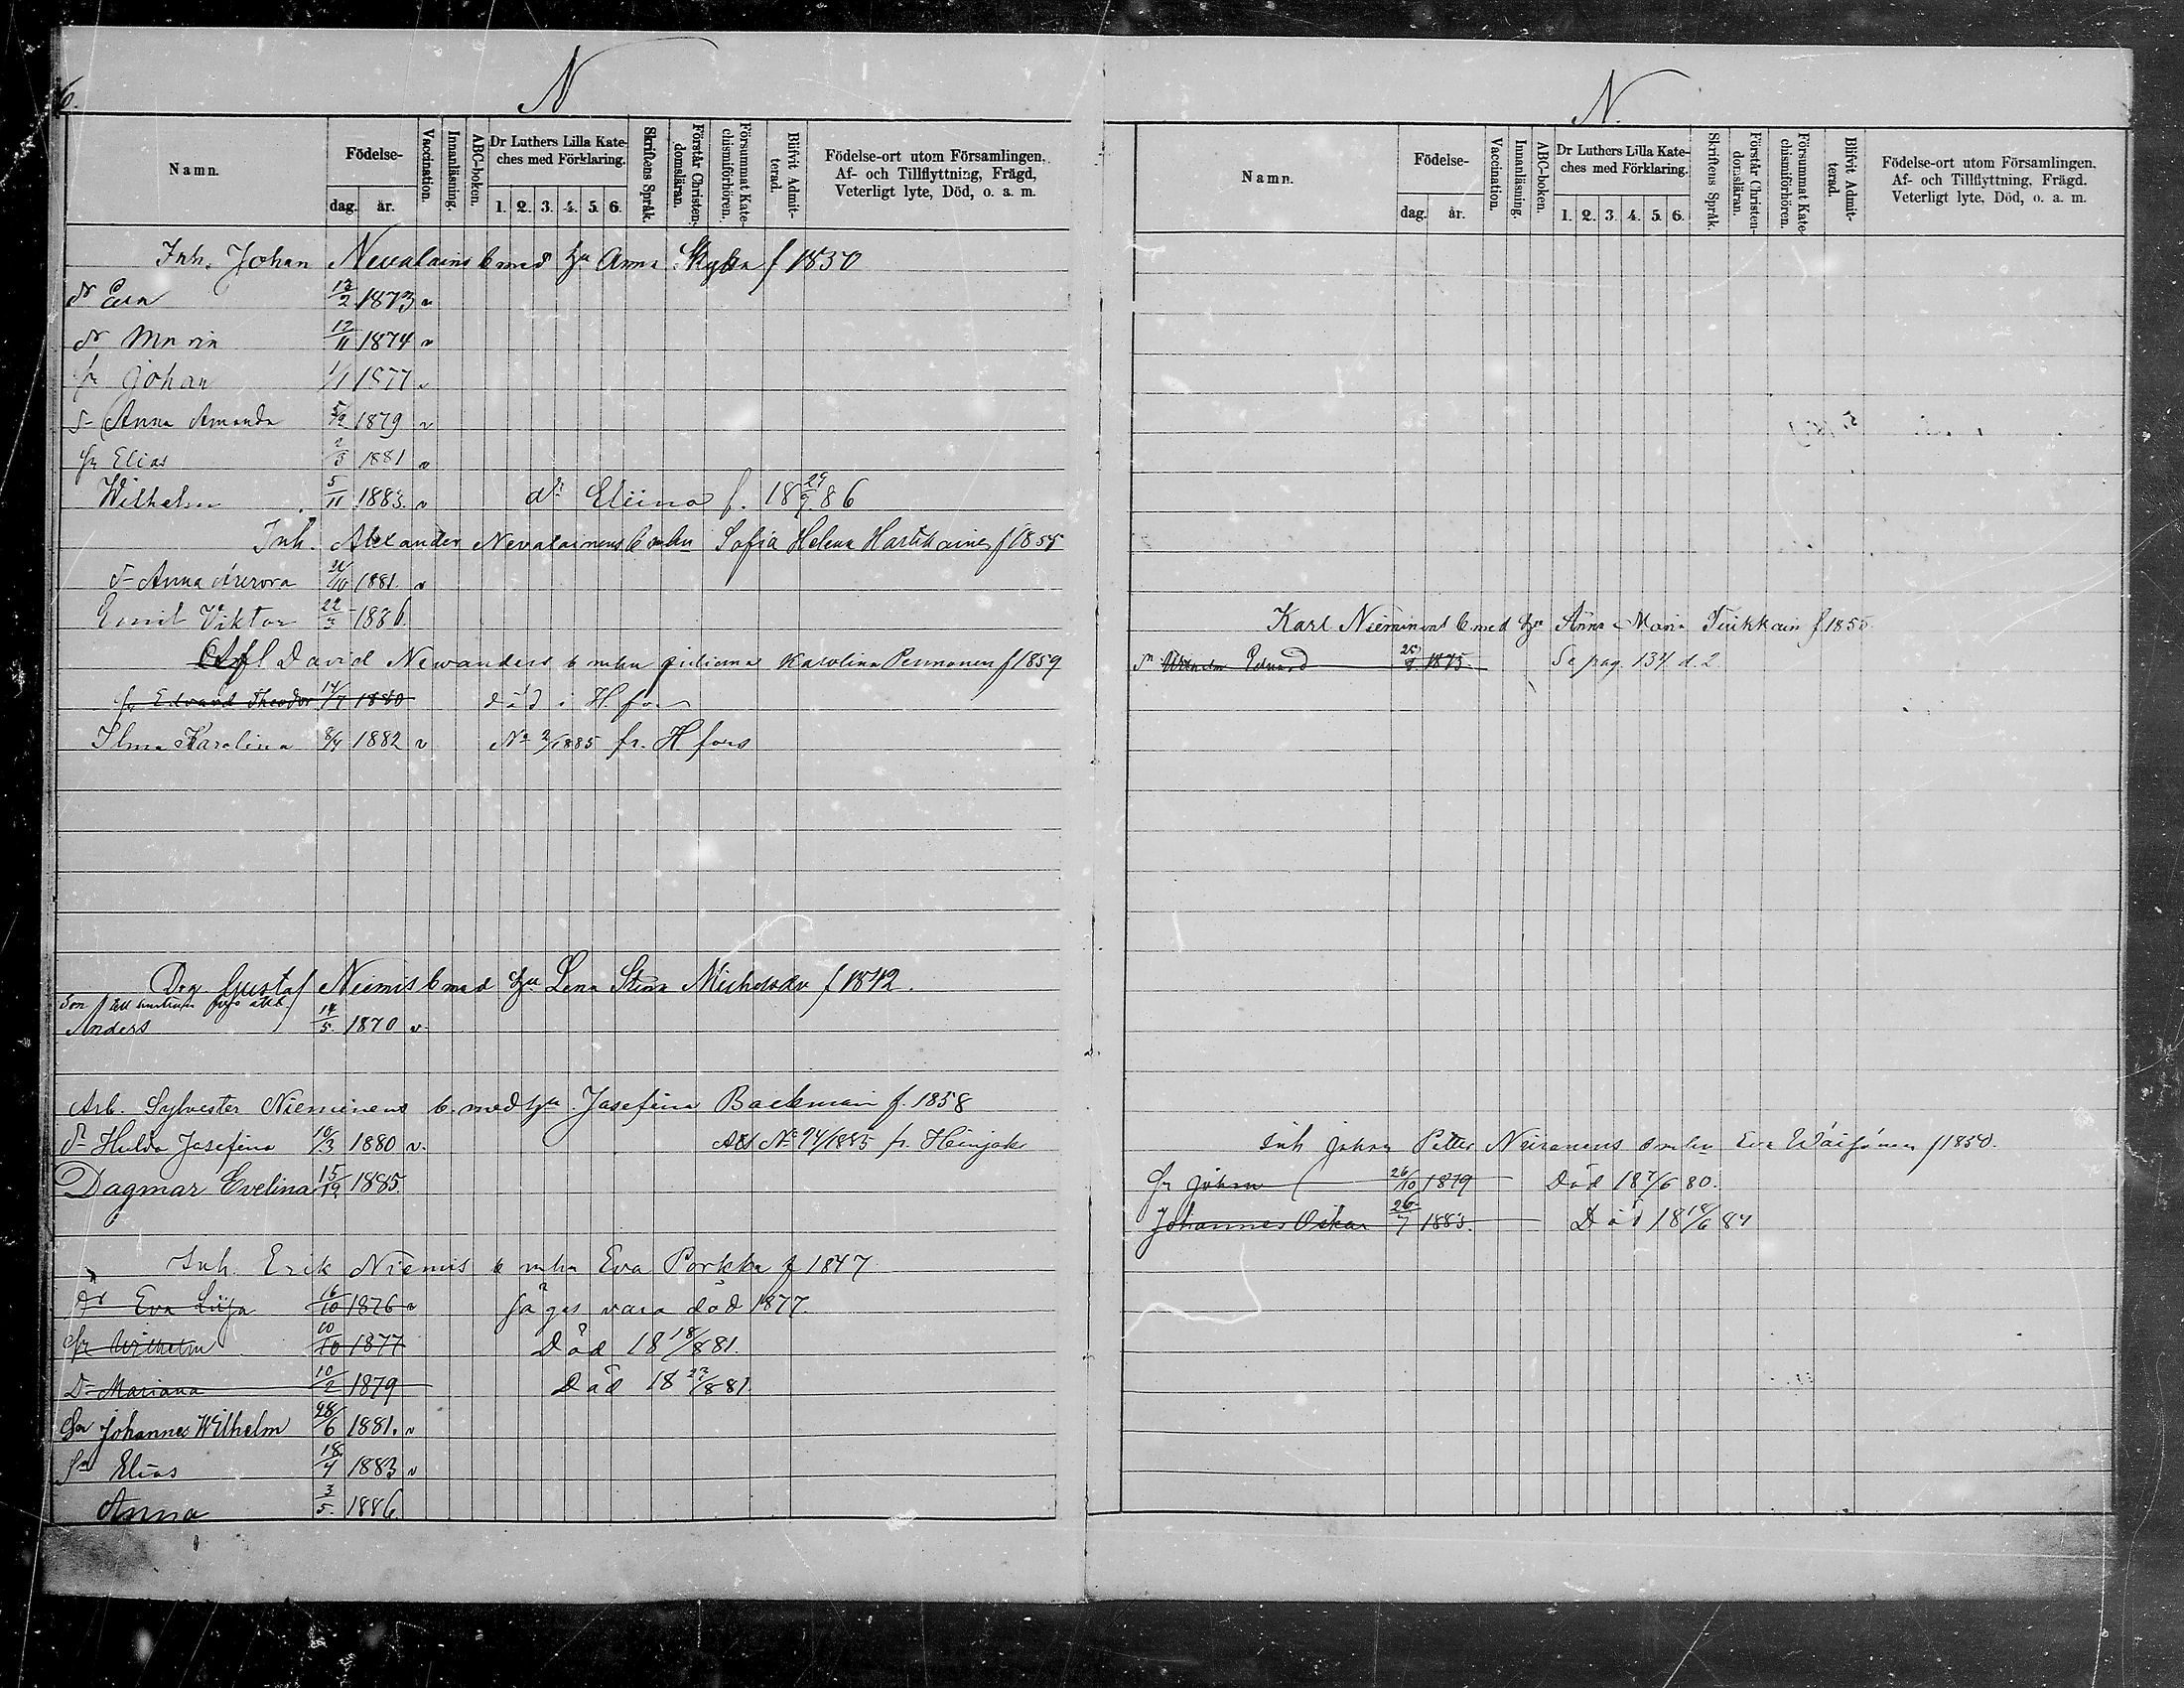 6.
N
Namn.
Födelse-
dag.
år.
Vaccination.
Innanläsning.
ABC-boken.
Dr Luthers Lilla Kate-
ches med Förklaring.
1. 2. 3. 4. 5. 6.
Skriftens Språk.
Förstår Christen-
domsläran.
Försummat Kate-
chismiförhören.
Blifvit Admit-
terad.
Födelse-ort utom Församlingen,
Af- och Tillflyttning, Frägd,
Veterligt lyte, Död, o. a. m.
Inh. Johan Nevalains b med hu Anna f 1850
dr Eva 13/2 1873 v
dr Maria 12/11 1874 v
Sn Johan 1/1 1877 v
dr Anna Amanda 5/12 1879 v
Sn Elias 2/3 1881 v
Wilhelm 5/11 1883. v dr Eliina f. 18 29/9 86
Inh. Alexander Nevalainens b mhu Sofia Helena Hartikainen f 1855
dr Anna Aurora /10 1881. v
Emil Viktor 22/3 1886.
David Newanders b mhu Juliana Karolina Pennonen f 1859
Sn Edvard Theodor 14/7 1880 död i H.fors
Ilma Karolina 8/4 1882 v No 2/1885 fr. Hfors
Drg Gustaf Niemis b med hu Lena Stina Michelsdr f 1842.
Son
Anders 14/5. 1870 v.
Arb. Sylvester Nieminens b. med hu Josefina Backman f. 1858
dr Hulda Josefina 10/3 1880 v. Att No 24/1885 fr. Heinjoki
Dagmar Evelina 15/12 1885.
Inh. Erik Niemis b mhu Eva Porkka f 1847
dr Eva Liisa 16/10 1876 v Säges vara död 1877.
Sn Wilhelm 10/10 1877 Död 18 18/8 81.
Dr Mariana 10/2 1879 Död 18 23/8 81.
Sn Johannes Wilhelm 28/6 1881. v
Sn Elias 18/4 1883 v
Anna 3/5. 1886
N.
Namn.
Födelse-
dag.
år.
Vaccination.
Innanläsning.
ABC-boken.
Dr Luthers Lilla Kate-
ches med Förklaring.
1. 2. 3. 4. 5. 6.
Skriftens Språk.
Förstår Christen-
domsläran.
Försummat Kate-
chismiförhören.
Blifvit Admit-
terad.
Födelse-ort utom Församlingen,
Af- och Tillflyttning, Frägd.
Veterligt lyte, Död, o. a. m.
Karl Nieminens b med hu Anna Maria f 1855.
Sn Wilhelm Edvard 1875 Se pag. 134 d. 2
Inh Johan Petter b mhu Eva f 1850.
Sn Johan 26/10 1879 Död 18 7/6 80.
Johannes Oskar 26/7 1883. Död 18 18/6 84